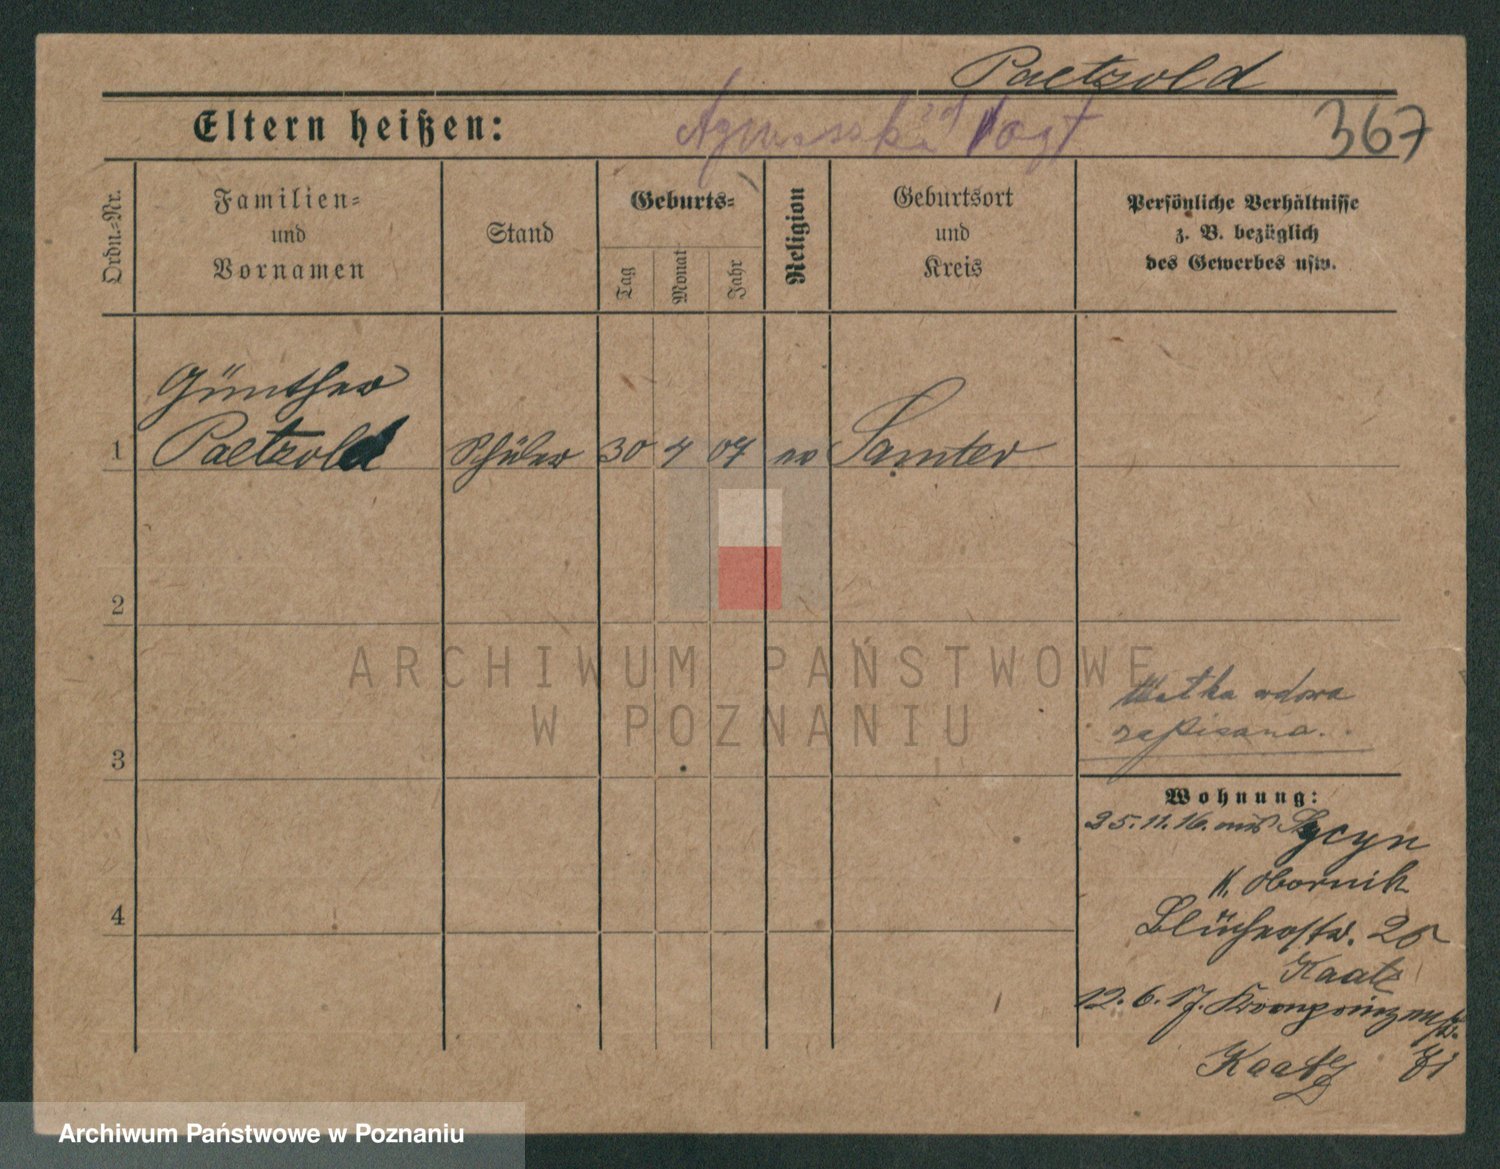 Paetzold
Eltern heißen:
Vogt
367
Ordn.-Nr.
Familien-
und
Vornamen
Stand
Geburts-
Tag
Monat
Jahr
Religion
Geburtsort
und
Kreis
Persönliche Verhältnisse
z. B. bezüglich
des Gewerbes usw.
Günther
1 Paetzold Schüler 30 4 07 ev Samter
2
ARCHIWUM PAŃSTWOWE
W POZNANIU
Matka wdowa
zapisana.
3
Wohnung:
25.11.16. aus Sycyn
K. Obornik
4
Blücherstr. 25
Kaatz
12.6.17. Kronprinzenstr.
Kaatz
Archiwum Państwowe w Poznaniu